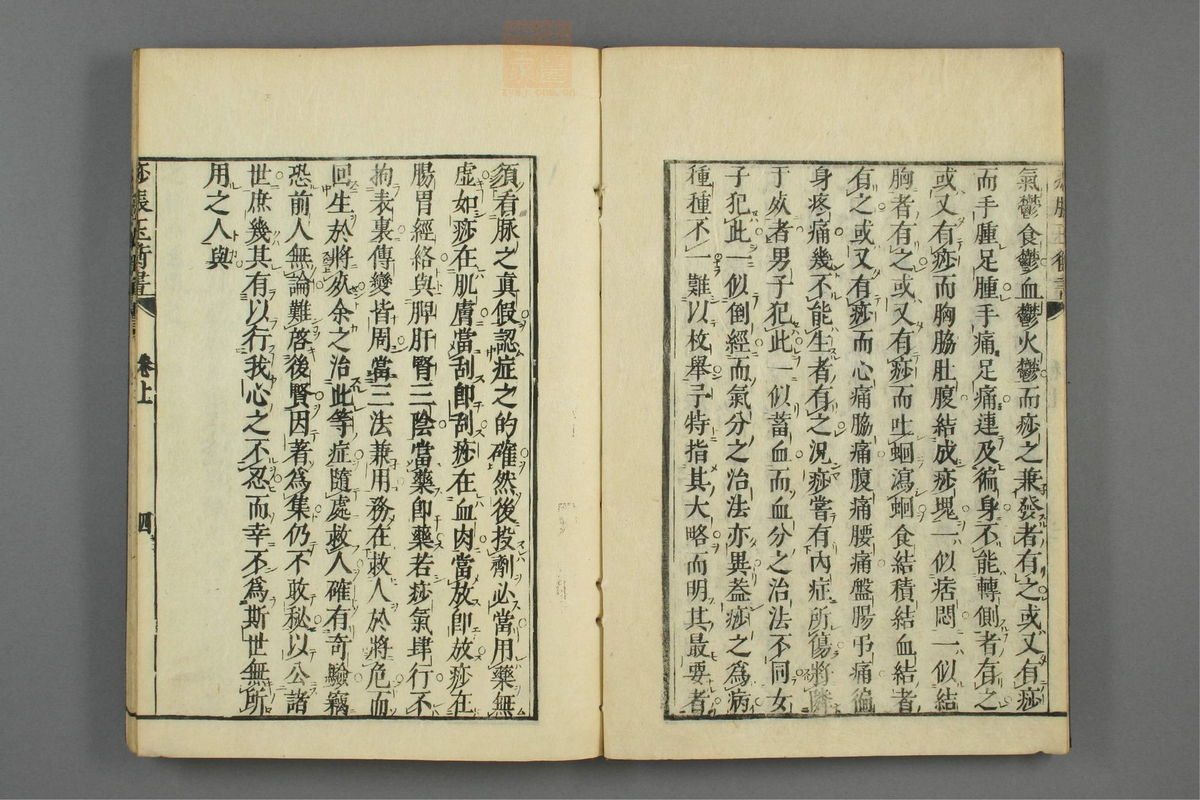 氣鬱食鬱血鬱火鬱而痧之兼發者有之或又有痧
而手腫足腫手痛足痛連及徧身不能轉側者有之
或又有痧而胸脇肚腹結成痧塊一似痞悶一似結
胸者有之或又有痧而吐蛔瀉蛔食結積結血結者
有之或又有痧而心痛脇痛腹痛腰痛盤腸弔痛徧
身疼痛幾不能生者有之況痧嘗有內症所傷將隣
于死者男子犯此一似蓄血而血分之治法不同女
子犯此一似倒經而氣分之治法亦異葢痧之爲病
種種不一難以枚舉予特指其大略而明其最要者
須看脉之真假認症之的確然後投劑必當用藥無
虛如痧在肌膚當刮卽刮痧在血肉當放卽放痧在
腸胃經絡與脾肝腎三陰當藥卽藥若痧氣肆行不
拘表裏傳變皆周當三法兼用務在救人於將危而
回生於將死余之治此等症隨處救人確有奇驗竊
恐前人無論難啓後賢因著爲集仍不敢秘以公諸
世庶幾其有以行我心之不忍而幸不爲斯世無所
用之人與
痧脹玉衡書 卷上 四